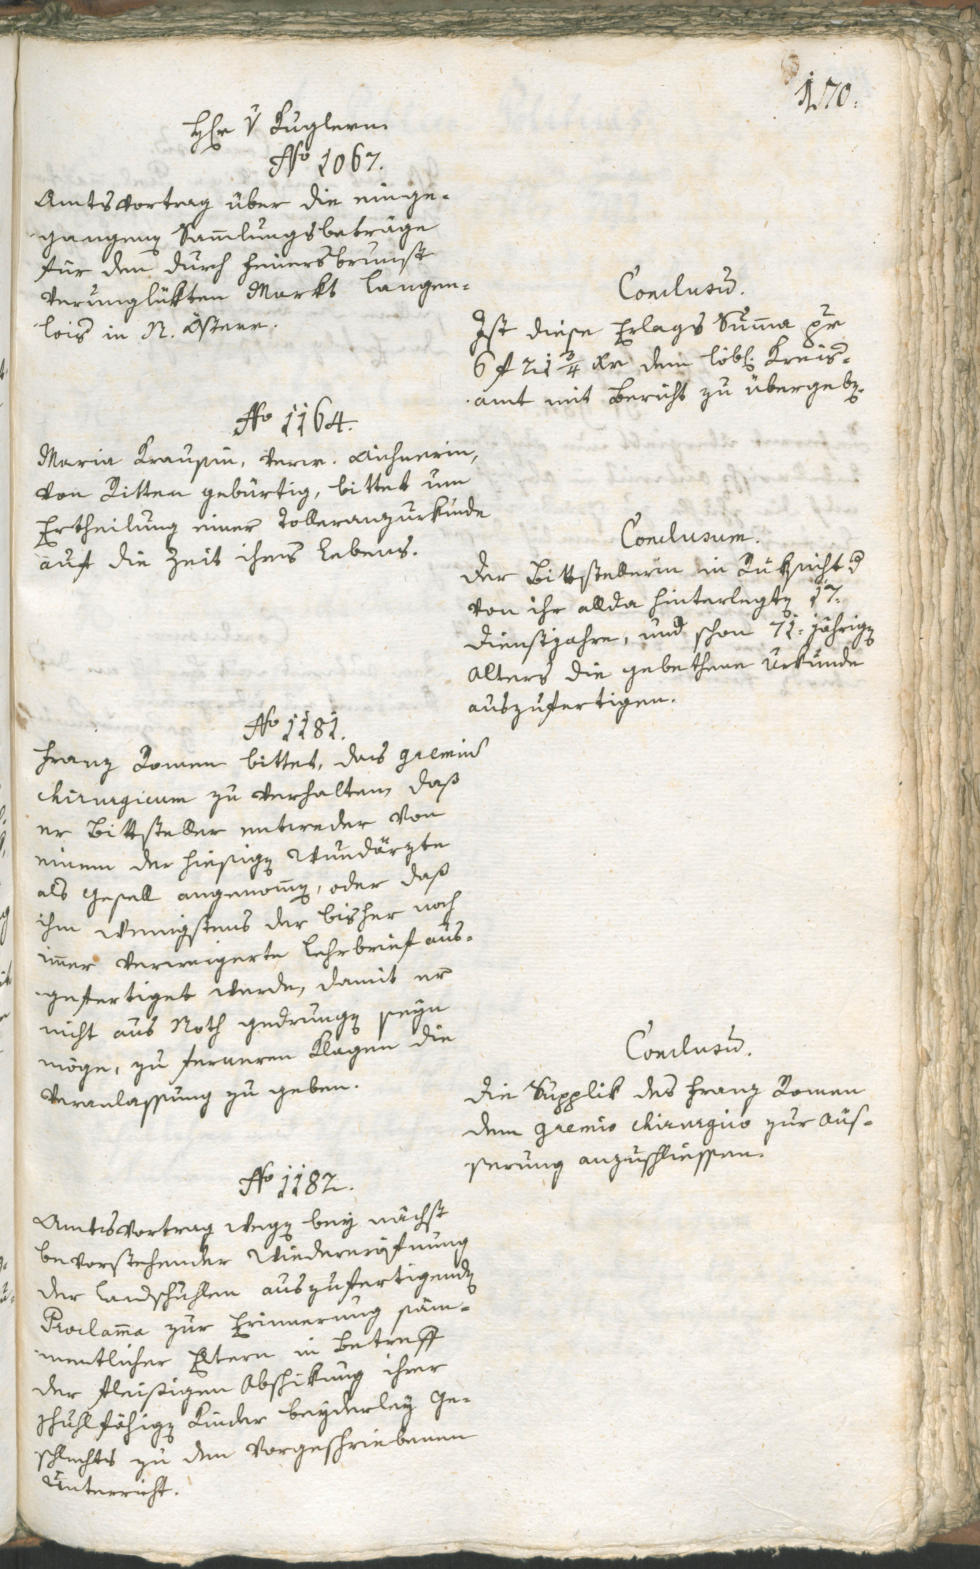 170.
Hr. v Kuglern
No 1067.
Amtsvortrag über die einge-
gangenen Sam̄lungsbeträge
für den durch Feuersbrunst
verunglükten Markt Langen-
lois in N. Östere.
Conclusū.
Ist diese Erlags Sum̄a pr
6 f 21 3/4 xr dem löbl: Kreis-
amt mit Bericht zu übergeben.
No 1164.
Maria Krausin, verw. Aichnerin,
von Ritten gebürtig, bittet um
Ertheilung einer Tolleranzurkunde
auf die Zeit ihres Lebens.
Conclusum.
Der Bittstellerin in Rüksicht d
von ihr allda hinterlegten 17.
Dienstjahre, und schon 71. jährigen
Alters die gebethene Urkunde
auszufertigen.
No 1181.
Franz Romen bittet, das gremiū
chirurgicum zu verhalten, daß
er Bittsteller entweder von
einem der hiesigen Wundärzte
als Gesell angenom̄en, oder daß
ihm wenigstens der bisher noch
im̄er verweigerte Lehrbrief aus-
gefertiget werde, damit er
nicht aus Noth gedrungen seyn
möge, zu ferneren Klagen die
Veranlassung zu geben.
Conclusū.
Die Supplik des Franz Romen
dem gremio chirurgico zur Aüs-
serung anzuschliessen.
No 1182.
Amtsvortrag wegen bey nächst
bevorstehender Wiedereröfnung
der Landschuhlen auszufertigenden
Proclam̄a zur Erinnerung säm-
mentlicher Eltern in Betreff
der fleißigen Abschikung ihrer
schuhlfähigen Kinder beyderley Ge-
schlechts zu dem vorgeschriebenen
Unterricht.